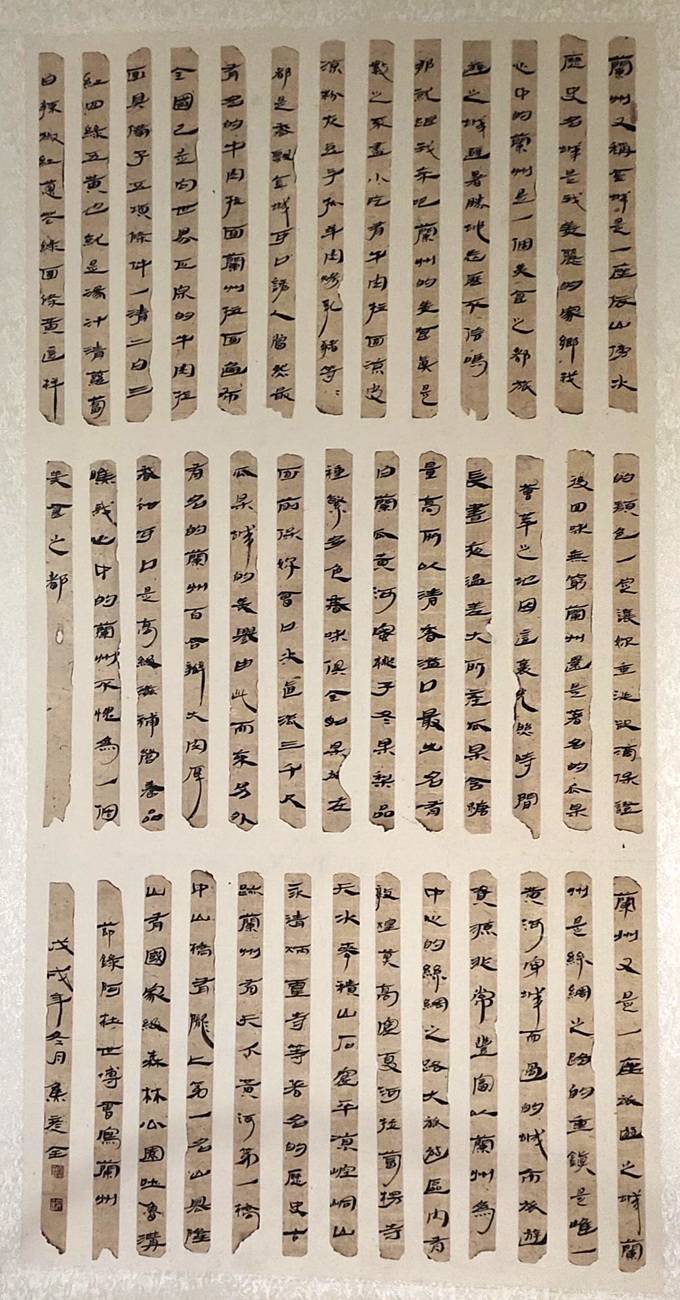 蘭州又稱金城是一座依山傍水
歷史名城是我美麗的家鄉我
心中的蘭州是一個美食之都旅
遊之城避暑勝地您還不信嗎
那就跟我來吧蘭州的美食真是
數之不盡小吃有牛肉拉面涼皮
涼粉灰豆子和羊肉
都是香飄金城可口誘人當然最
有名的牛肉拉面蘭州拉面遍布
全國已走向世界正宗的牛肉拉
面具備了五項條件一清二白三
紅四綠五黃也就是湯汁清蘿蔔
白辣椒紅蔥芫綠面條黃這樣
的顏色一定讓你垂涎欲滴保證
後回味無窮蘭州還是著名的瓜果
薈萃之地因這裏光照時間
長晝夜溫差大所產瓜果含糖
量高所以清香溢口最出名有
白蘭瓜黃河蜜桃子冬果梨品
種繁多色香味俱全如果放在
面前保你會口水直流三千尺
瓜果城的美譽由此而來另外
有名的蘭州百合瓣大肉厚
香甜可口是高級滋補營養品
噢我心中的蘭州不愧為一個
美食之都
蘭州又是一座旅遊之城蘭
州是絲綢之路的重鎮是唯一
黃河穿城而過的城市旅遊
資源非常豐富以蘭州為
中心的絲綢之路大旅遊區內有
敦煌莫高窟夏河拉蔔楞寺
天水麥積山石窟平涼崆峒山
永清炳靈寺等著名的歷史古
跡蘭州有天下黃河第一橋
中山橋有隴上第一名山興隆
山有國家級森林公園吐魯溝
節錄阿杜世傳會寫蘭州
戊戌年冬月